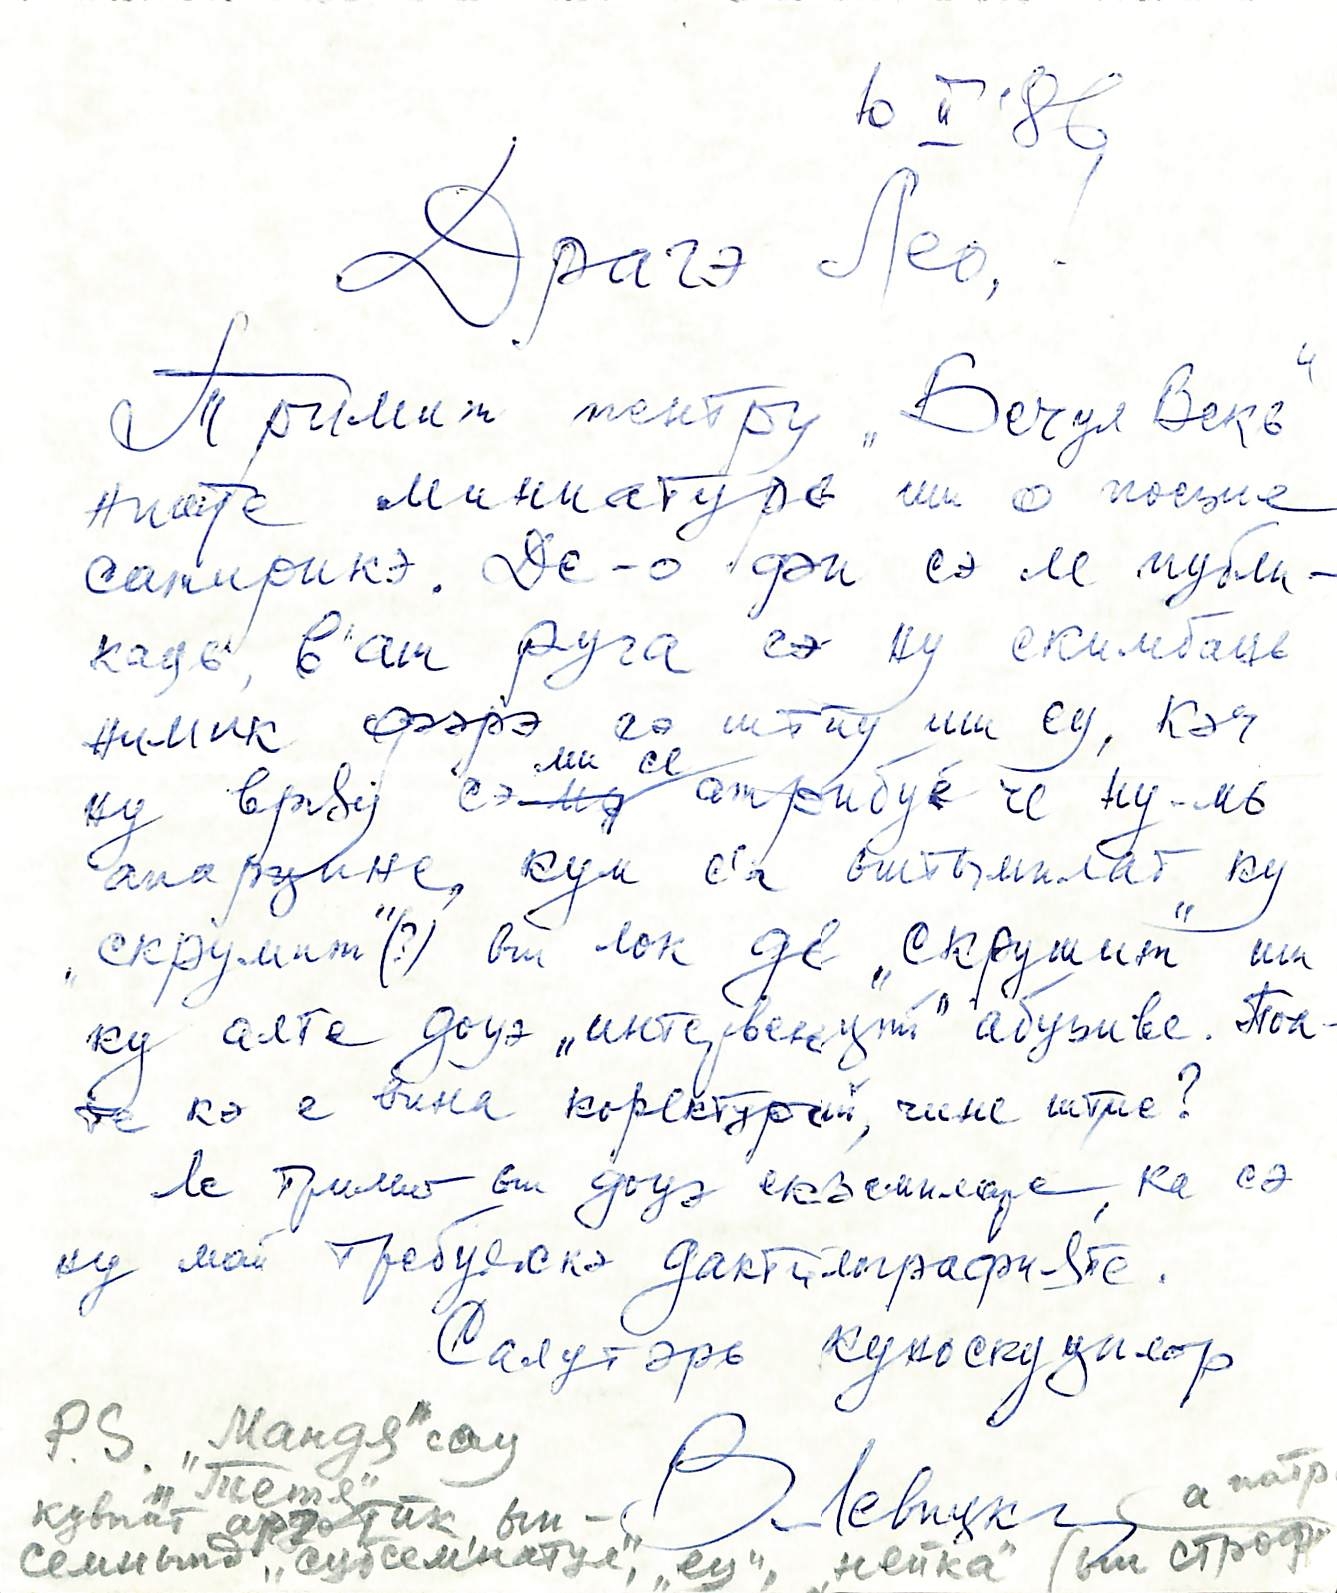 10 II '86
Драгэ Лео,!
Тримит пентру „Бечул Векь“
ниште миниатурь ши о поезие
сатирикэ. Де-о фи сэ ле публи-
каць, в'аш руга сэ ну скимбаць
нимик фэрэ сэ штиу ши еу, кэч
ну вряу сэ ми се атрибуе че ну-мь
апарцине, кум с'а ынтымплат ку
„скрумит“(?) ын лок де „скрушит“ ши
ку алте доуэ „интервенций“ абузиве. Поа-
те кэ е вина коректурий, чине штие?
Ле тримит ын доуэ екземпларе, ка сэ
ну май требуяскэ дактилографияте.
Салутэрь куноскуцилор
В. Левицки
P.S. „Мандя“ сау
„Тетя“
кувынт арготик, ын-
семнынд „субсемнатул“, „еу“, „нейка“ (ын строф
а патр